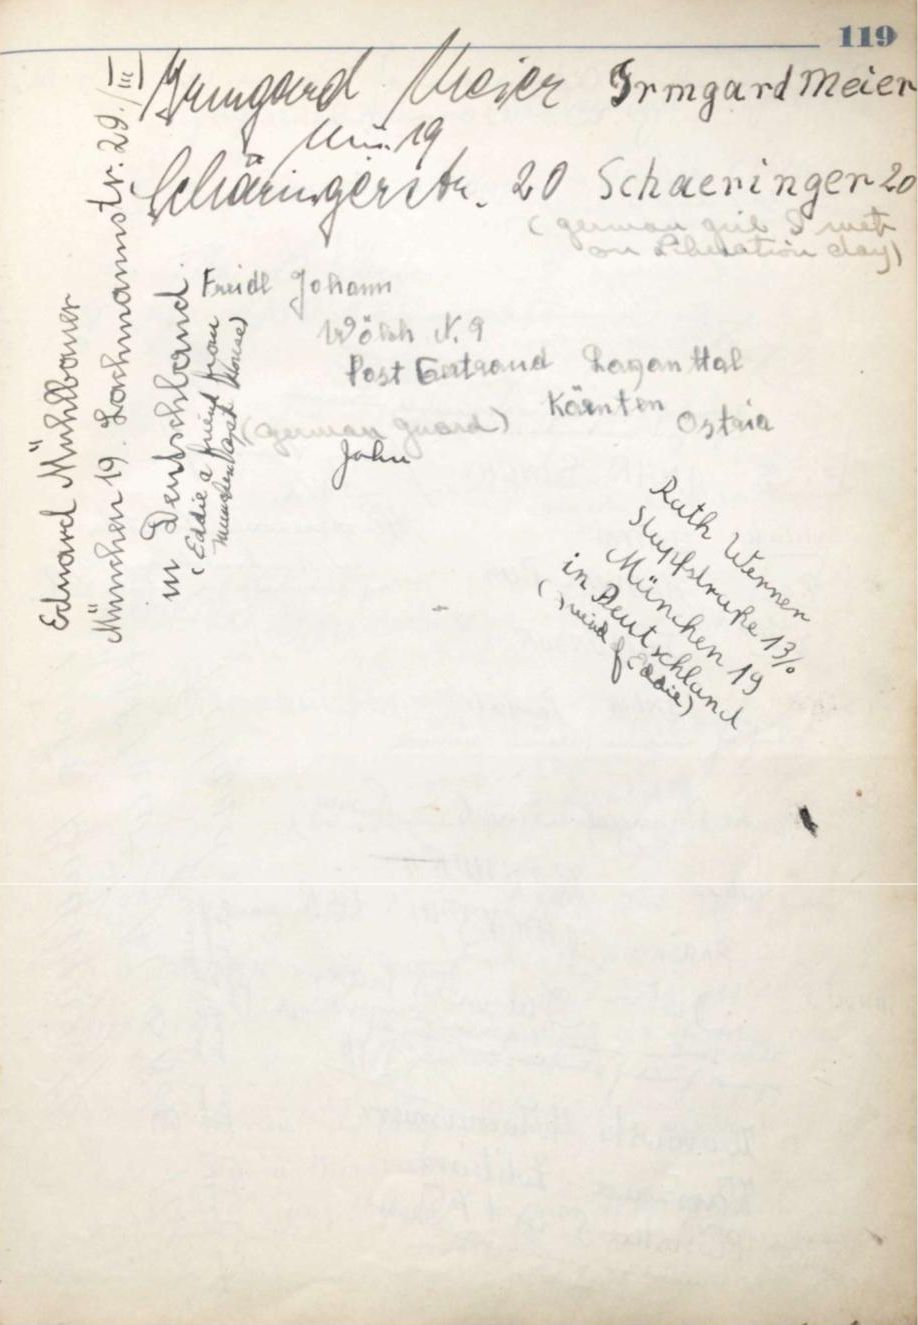 119
Irmgard Meier Irmgard Meier
Mü. 19
Schäringerstr. 20 Schaeringer 20
(german girl I met
on Liberation day)
Eduard Mühlbauer
München 19. Lachmannstr. 29./III
in Deutschland
(Eddie a friend from
House)
Freidl Johann
Wölch N. 9
Post Gertraud Lavanttal
Kärnten
Ostria
(german guard)
John
Ruth Werner
Slupfstraße 13/0
München 19
in Deutschland
(friend of Eddie)